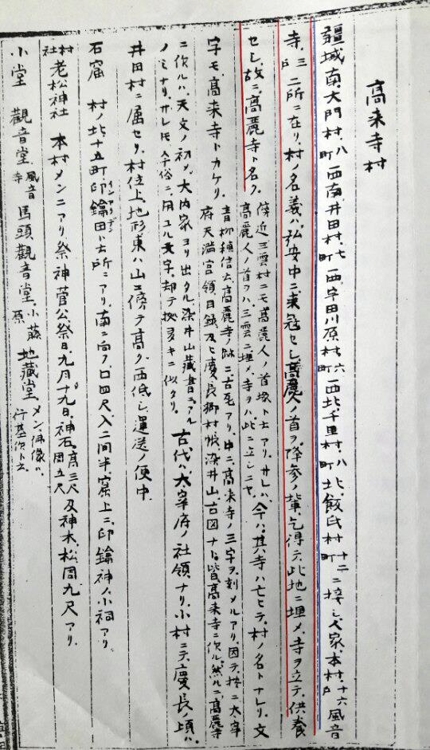 高来寺村
疆域南大門村八町西南井田村七町西宇田川原村六町西北千里村八町北飯氏村十二町ニ接シ人家本村十六戸風音
寺三戸二所ニ在リ村ノ名義ハ弘安中ニ来冠セシ高麗人ノ首ヲ降参ノ輩乞得テ此地ニ埋メ寺ヲ立テ供養
セシ故ニ高麗寺ト名ク
傍近三雲村ニモ高麗人ノ首塚ト云アリサレハ
高麗人ノ首ヲハ三雲ニ埋メ寺ヲハ此ニ立シニヤ
今ハ其寺ハ亡ヒテ村ノ名トナレリ文
字モ高来寺トカケリ
青柳種信云高麗寺ノ跡ニ古瓦アリ中ニ高来寺ノ三字ヲ刻メルアリ因テ按ニ大宰
府天満宮領目録及ヒ慶長郷村帳染井山古図ナト皆高来寺ニ作ル然ルニ高麗寺
ニ作ルハ天文ノ初メ大内家ヨリ出タル染井山蔵書ニアル
ノミナリサレモ今俗ニ用ユル文字却テ拠多キニ似タリ
古代ハ大宰府ノ社領ナリ小村ニテ慶長ノ頃ハ
井田村ニ属セリ村位上地形東ハ山ニ傍テ高ク西低シ運送ノ便中
石窟 村ノ北十五町印鑰田ト云所ニアリ南ニ向フ口四尺入二間半窟上ニ印鑰神ノ小祠アリ
村社 老松神社 本村メンニアリ祭神菅公祭日九月十九日神石高三尺周五尺及神木松周九尺アリ
小堂 観音堂風音寺 馬頭観音堂小藤原 地蔵堂メン仏像ハ行基作ト云